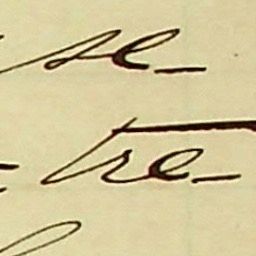 se-
tre-